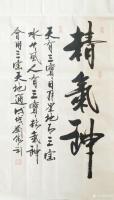 精氣神
天有三寶日月星地有三寶
水火風人有三寶精氣神
會用三寶天地通